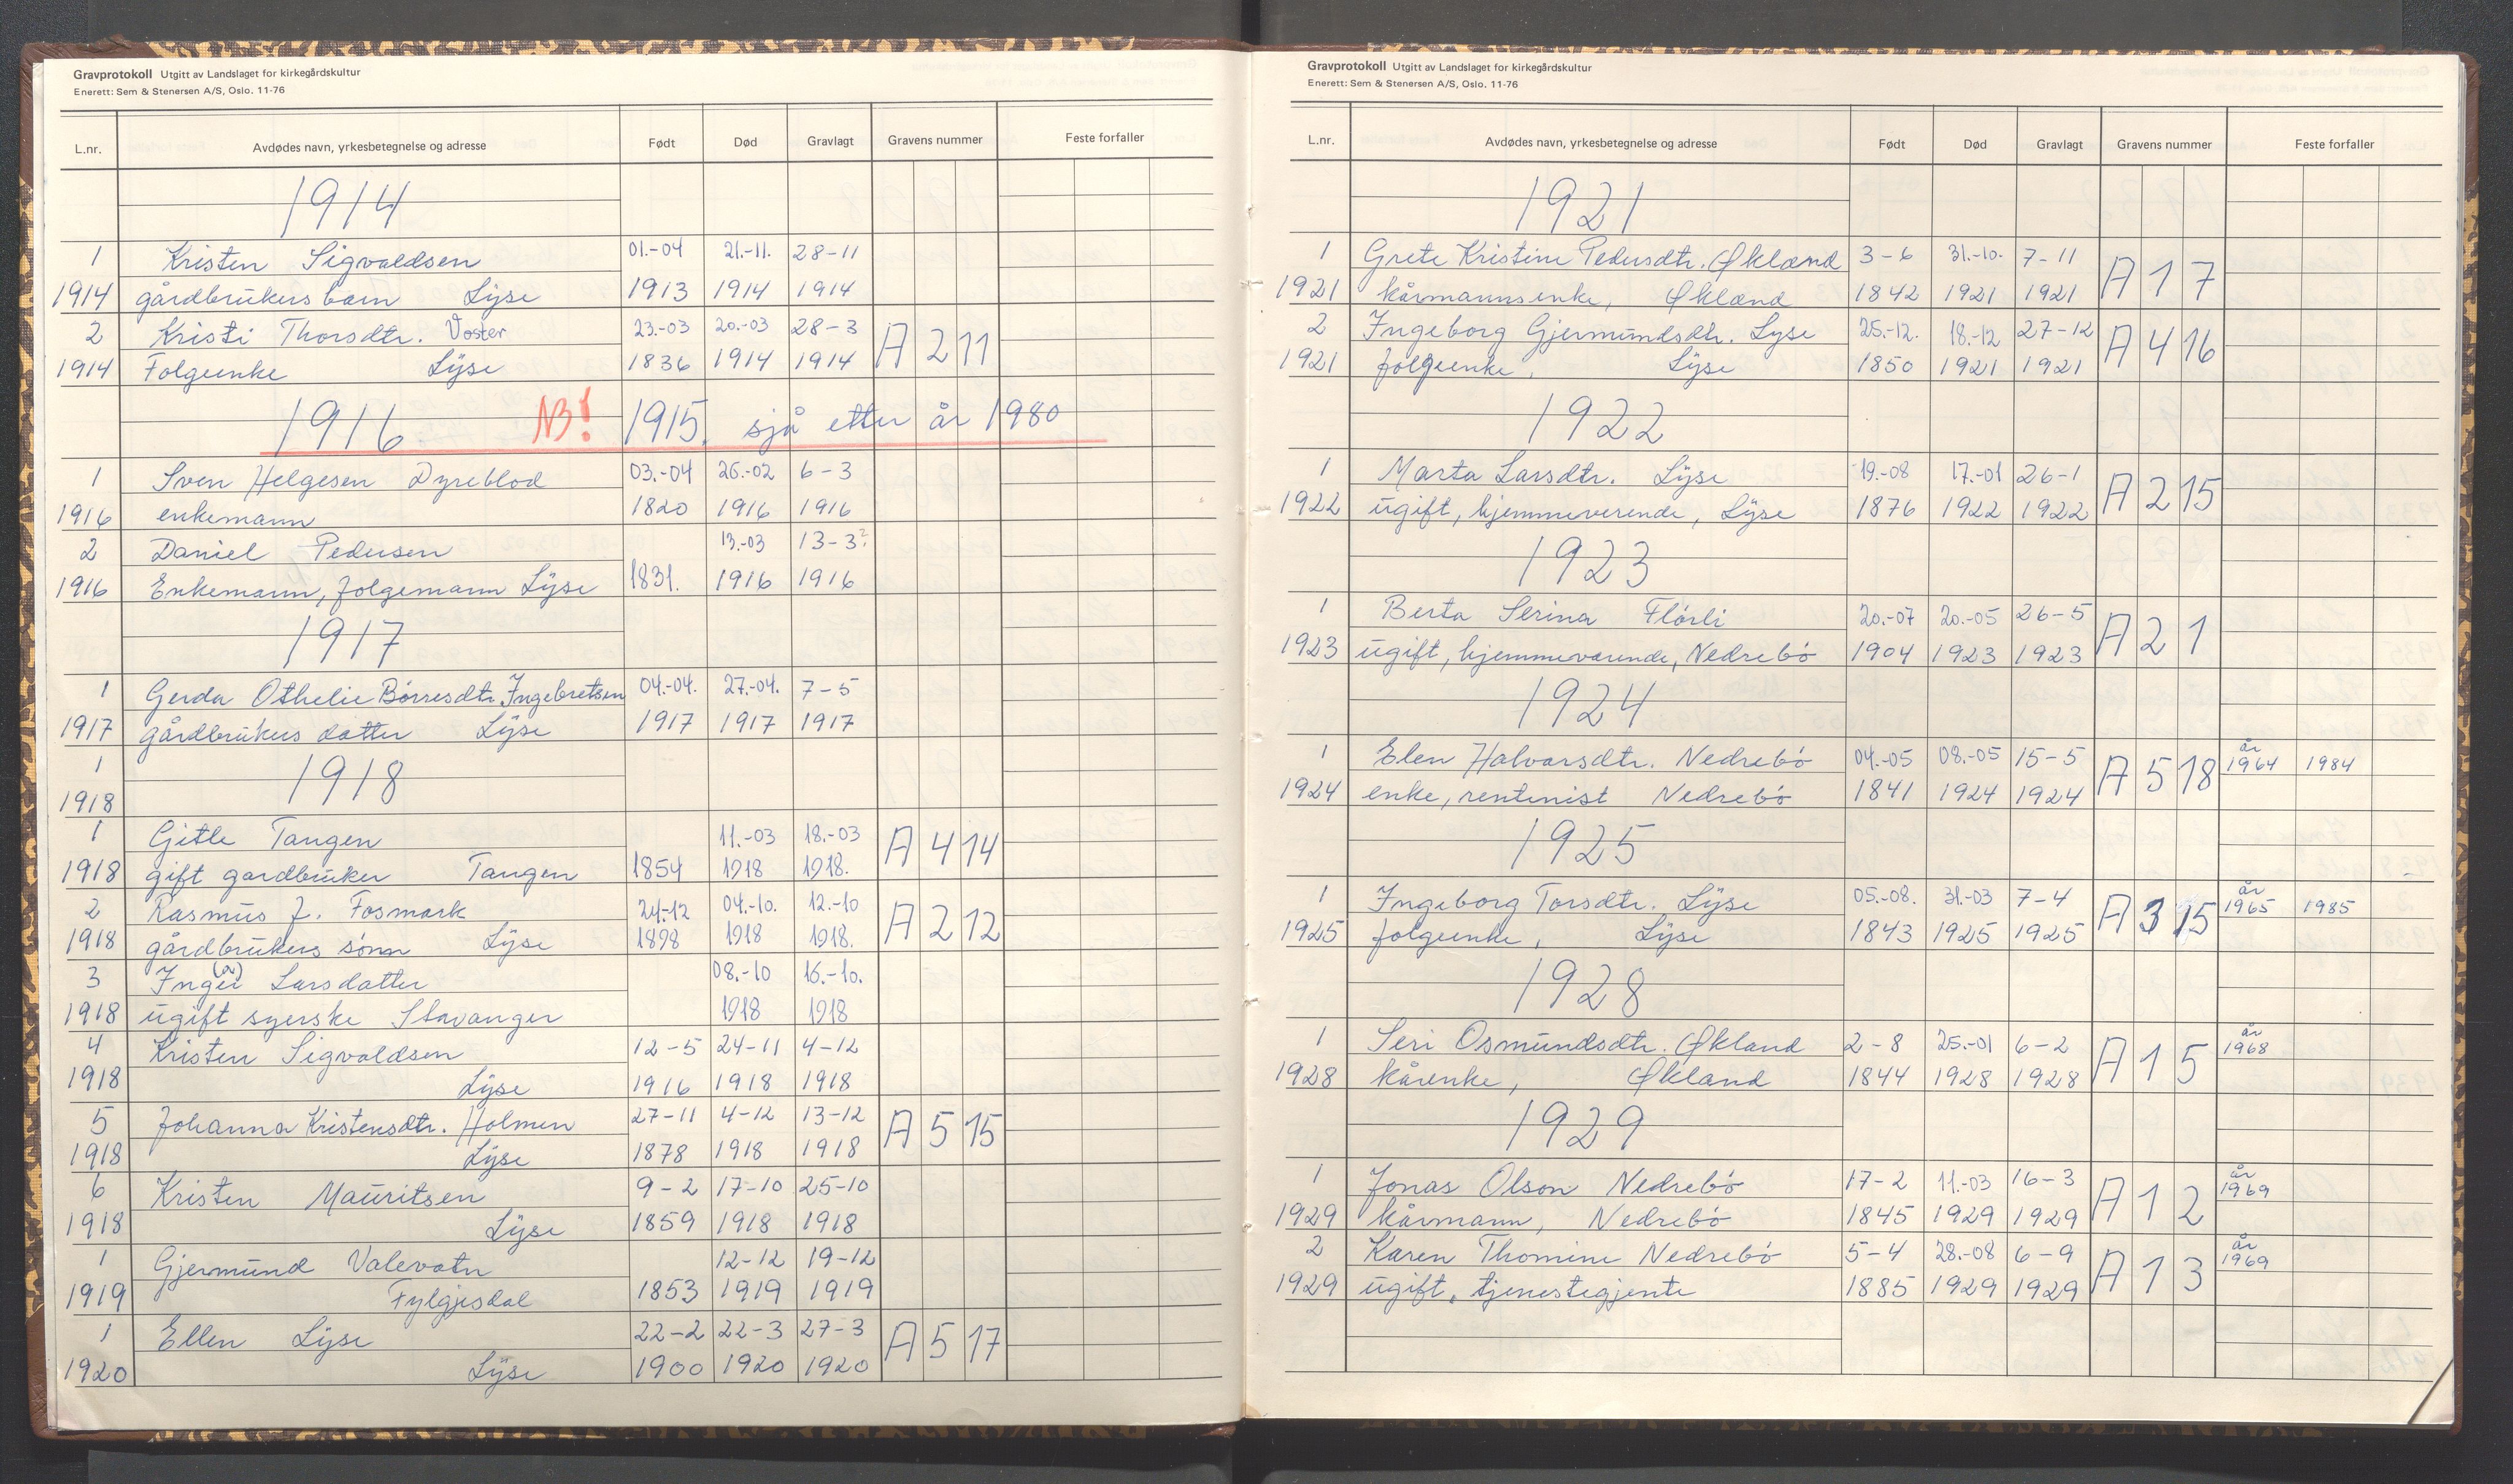 Gravprotokoll Utgitt av Landslaget for kirkegårdskultur
Enerett: Sem & Stenersen A/S, Oslo. 11-76
L.nr. Avdødes navn, yrkesbetegnelse og adresse Født Død Gravlagt Gravens nummer Feste forfaller
1914
1 Kristen Sigvaldsen 01.-04 21.-11. 28-11
1914 gårdbrukers barn Lyse 1913 1914 1914
2 Kristi Thorsdtr. Voster 23.-03 20.-03 28-3 A 2 11
1914 Folgeenke Lyse 1836 1914 1914
1916 NB! 1915, sjå etter år 1980
1 Sven Helgesen Dyreblod 03.-04 26.-02 6-3
1916 enkemann 1820 1916 1916
2 Daniel Pedersen 13.-03 13-3?
1916 Enkemann, folgemann Lyse 1831. 1916 1916
1917
1 Gerda Othelie Børresdtr. Ingebretsen 04.-04. 27.-04. 7-5
1917 gårdbrukers datter Lyse 1917 1917 1917
1 1918
1918
1 Gitle Tangen 11.-03 18.-03 A 4 14
1918 gift gardbruker Tangen 1854 1918 1918.
2 Rasmus J. Fosmark 24.-12 04.-10. 12.-10 A 2 12
1918 gårdbrukers sønn Lyse 1898 1918 1918.
3 Inger (a) Larsdatter 08.-10 16.-10.
1918 ugift syerske Stavanger 1918 1918
4 Kristen Sigvaldsen 12-5 24-11 4-12
1918 Lyse 1916 1918 1918
5 Johanna Kristensdtr. Holmen 27-11 4-12 13-12 A 5 15
1918 Lyse 1878 1918 1918
6 Kristen Mauritsen 9-2 17-10 25-10
1918 Lyse 1859 1918 1918
1 Gjermund Valevatn 12-12 19-12
1919 Fylgjesdal 1853 1919 1919
1 Ellen Lyse 22-2 22-3 27-3 A 5 17
1920 Lyse 1900 1920 1920
Gravprotokoll Utgitt av Landslaget for kirkegårdskultur
Enerett: Sem & Stenersen A/S, Oslo. 11-76
L.nr. Avdødes navn, yrkesbetegnelse og adresse Født Død Gravlagt Gravens nummer Feste forfaller
1921
1 Grete Kristine Pedersdtr. Økland 3-6 31.-10. 7-11 A 1 7
1921 kårmannsenke, Økland 1842 1921 1921
2 Ingeborg Gjermundsdtr. Lyse 25.-12. 18.-12 27-12 A 4 16
1921 folgeenke, Lyse 1850 1921 1921
1922
1 Marta Larsdtr. Lyse 19.-08 17.-01 26-1 A 2 15
1922 ugift, hjemmeverende, Lyse 1876 1922 1922
1923
1 Berta Serina Flörli 20.-07 20.-05 26-5 A 2 1
1923 ugift, hjemmeværende, Nedrebö 1904 1923 1923
1924
1 Elen Halvarsdtr. Nedrebö 04.-05 08.-05 15-5 A 5 18 år 1964 1984
1924 enke, rentenist Nedrebö 1841 1924 1924
1925
1 Ingeborg Torsdtr. Lyse 05.-08. 31.-03 7-4 A 3 15 år 1965 1985
1925 folgeenke, Lyse 1843 1925 1925
1928
1 Seri Osmundsdtr. Økland 2-8 25.-01 6-2 A 1 5 år 1968
1928 kårenke, Økland 1844 1928 1928
1929
1 Jonas Olson Nedrebö 17-2 11.-03 16-3 A 1 2 år 1969
1929 kårmann, Nedrebö 1845 1929 1929
2 Karen Thomine Nedrebö 5-4 28.-08 6-9 A 1 3 år 1969
1929 ugift, tjenestegjente 1885 1929 1929